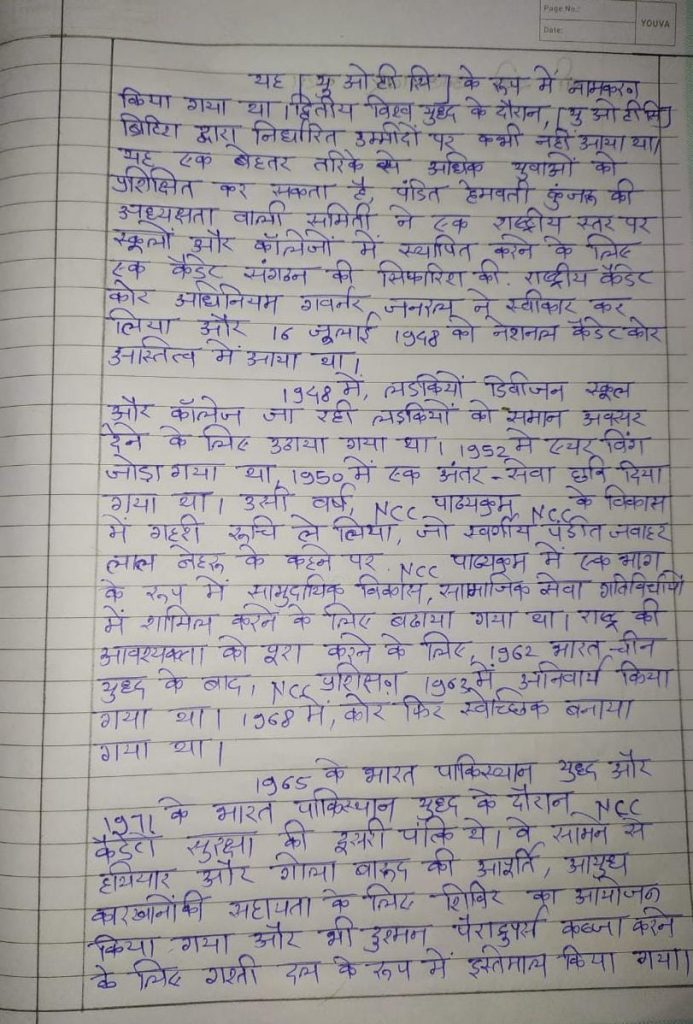 Page No.:
Date:
YOUVA
यह [ यु ओ टी सि ] के रूप में नामकरण
किया गया था। द्वितीय विश्व युध्द के दौरान, [ यु ओ टी सि ]
ब्रिटिश द्वारा निर्धारित उम्मीदों पर कभी नहीं आया था।
यह एक बेहतर तरिके से अधिक युवाओं को
प्रशिक्षित कर सकता है, पंडित हेमवती कुंजरू की
अध्यक्षता वाली समिती ने एक राष्ट्रीय स्तर पर
स्कूलों और कॉलेजों में स्थापित करने के लिए
एक कैडेट संगठन की सिफारिश की. राष्ट्रीय कैडेट
कोर अधिनियम गवर्नर जनरल ने स्वीकार कर
लिया और 16 जूलाई 1948 को नेशनल कैडेट कोर
अस्तित्व में आया था।
1948 में, लडकियों डिवीजन स्कूल
और कॉलेज जा रही लडकियों को समान अवसर
देने के लिए उठाया गया था। 1952 में एयर विंग
जोडा गया था, 1950 में एक अंतर - सेवा छवि दिया
गया था। उसी वर्ष, NCC पाठ्यक्रम NCC के विकास
में गहरी रूचि ले लिया, जो स्वर्गीय पंडीत जवाहर
लाल नेहरू के कहने पर NCC पाठ्यक्रम में एक भाग
के रूप में सामुदायिक विकास, सामाजिक सेवा गतिविधियों
में शामिल करने के लिए बढाया गया था। राष्ट्र की
आवश्यकता को पूरा करने के लिए, 1962 भारत-चीन
युध्द के बाद, NCC प्रशिक्षण 1963 में अनिवार्य किया
गया था। 1968 में, कोर फिर स्वैच्छिक बनाया
गया था।
1965 के भारत पाकिस्थान युध्द और
1971 के भारत पाकिस्थान युध्द के दौरान NCC
कैडेटो सुरक्षा की दूसरी पंक्ति थे। वे सामने से
हथियार और गोला बारूद की आपूर्ति, आयुध
कारखानोंकी सहायता के लिए शिविर का आयोजन
किया गया और भी दुश्मन पैराट्रुपर्स कब्जा करने
के लिए गश्ती दल के रूप में इस्तेमाल किया गया।